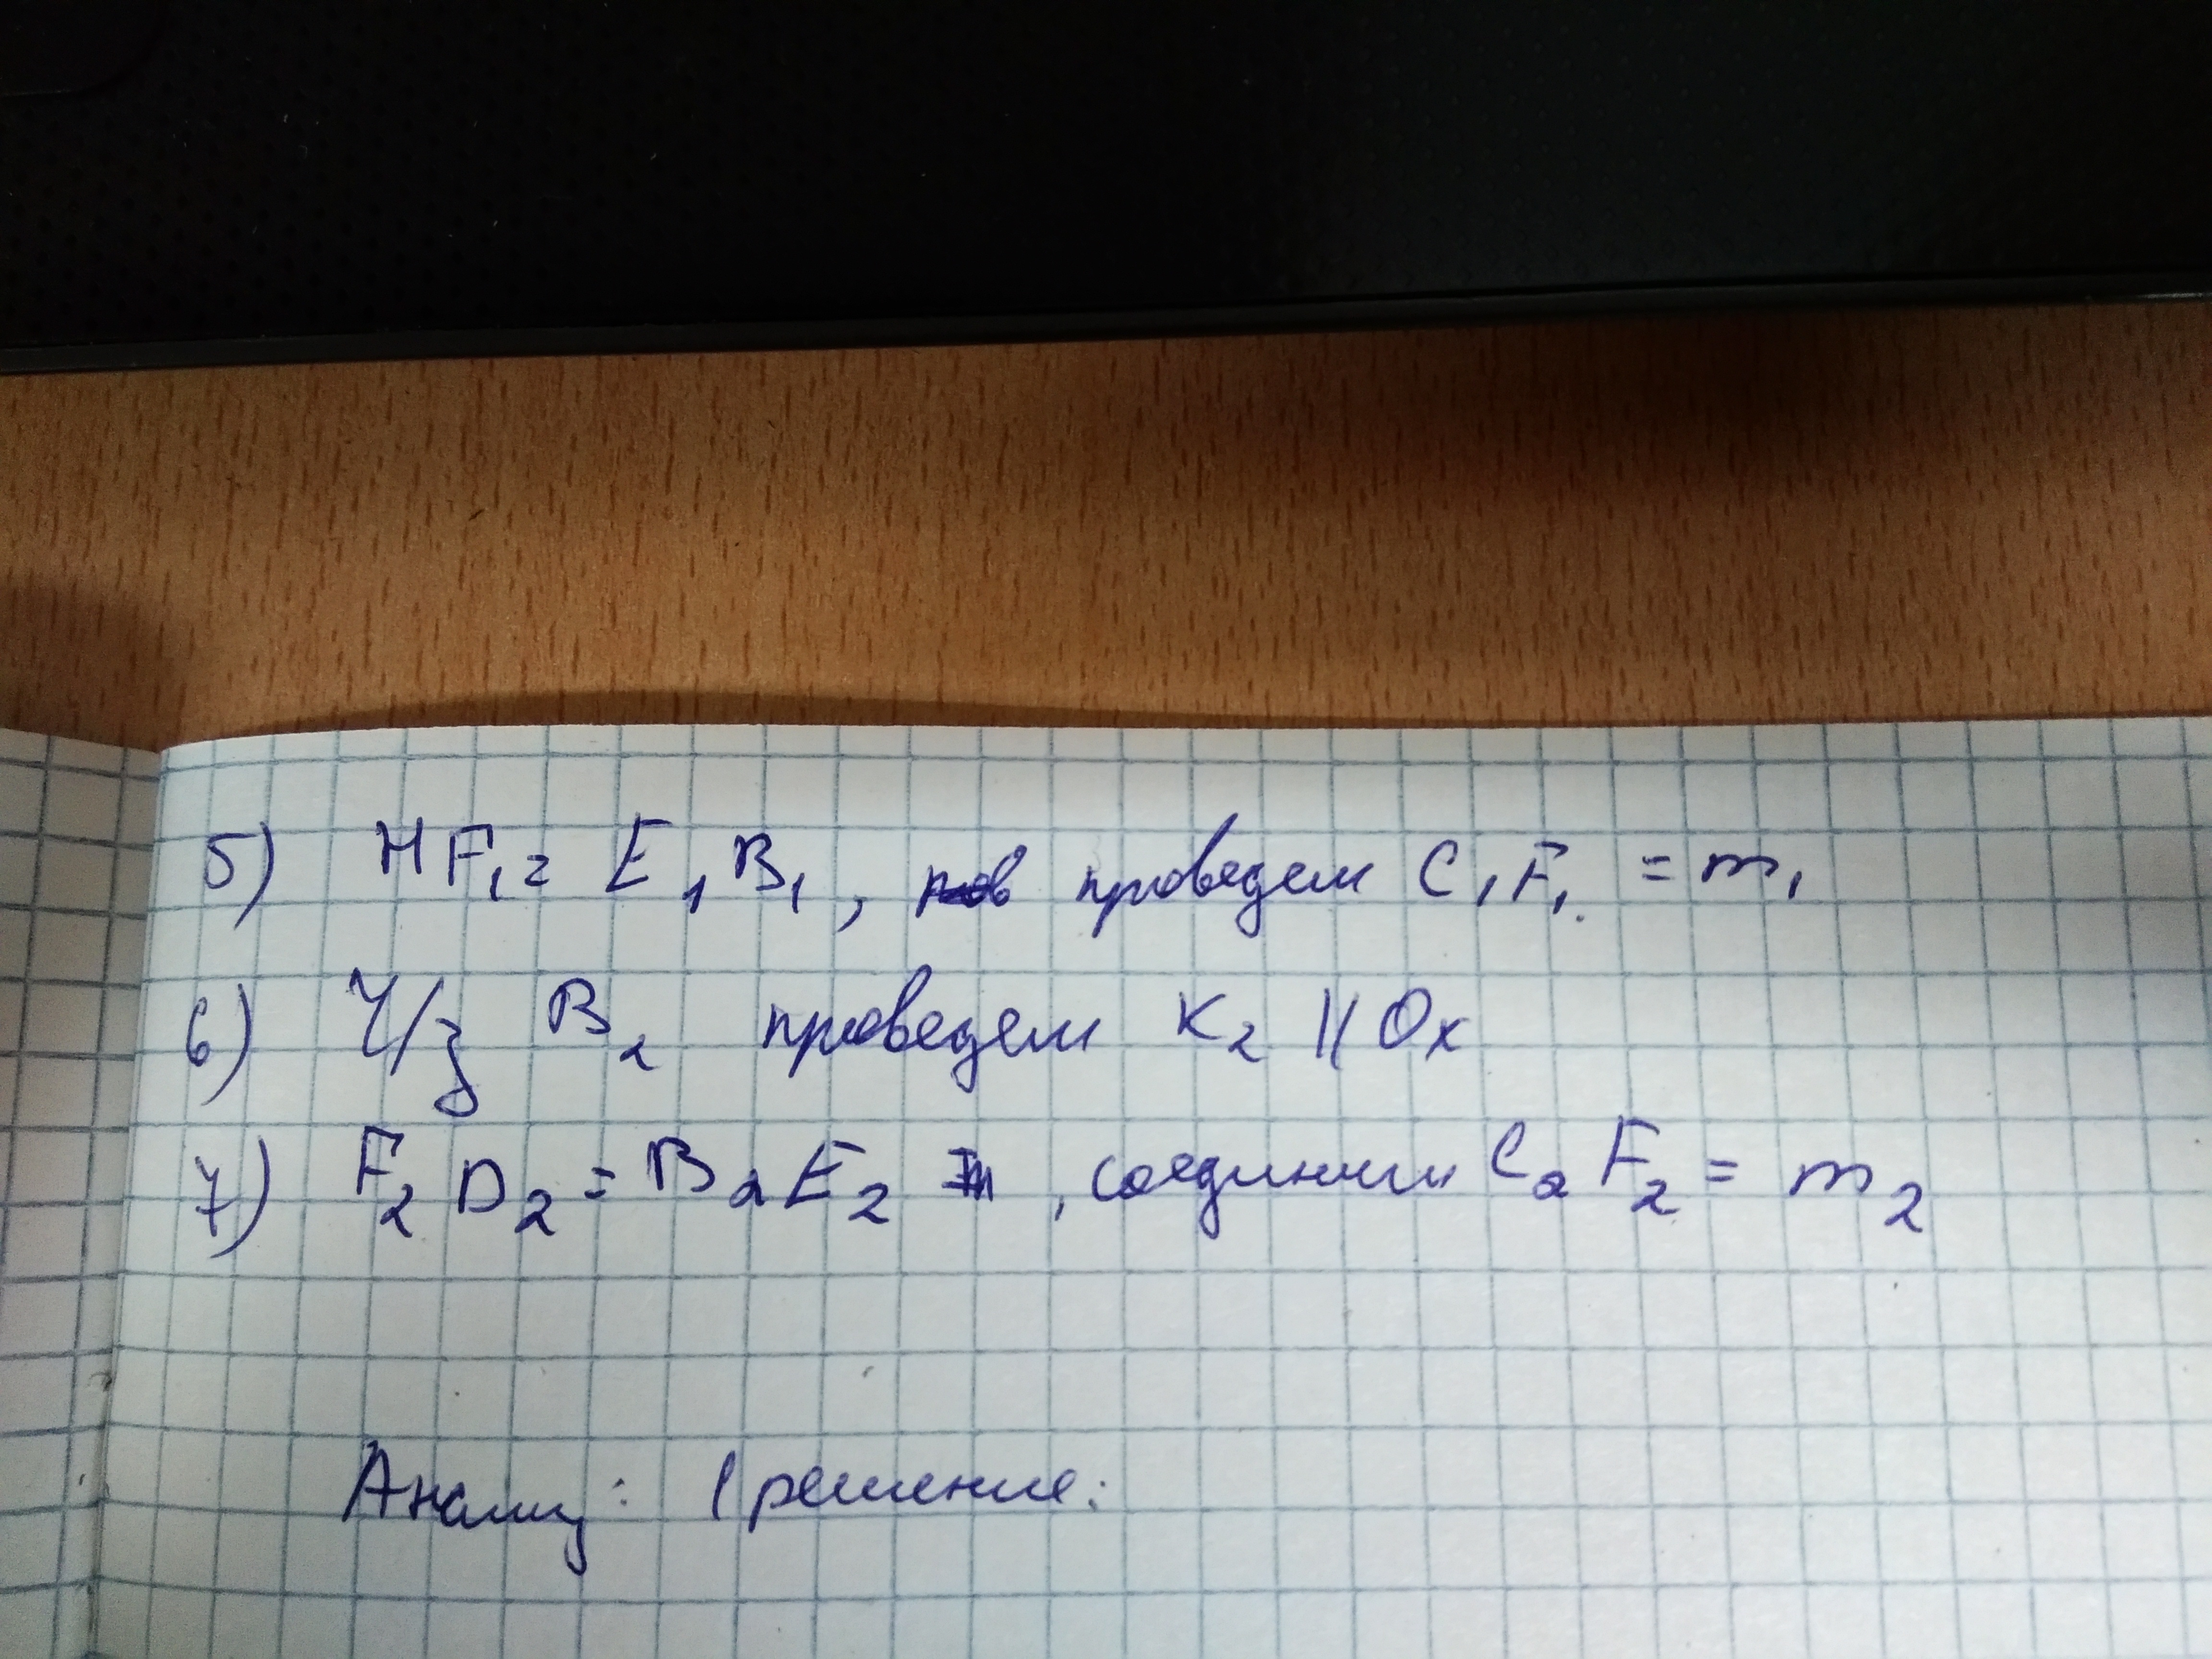 5) HF₁ = E₁B₁, проведем C₁F₁ = m₁
6) Ч/з B₂ проведем K₂ || Ox
7) F₂D₂ = B₂E₂, соединим C₂F₂ = m₂
Анализ: 1 решение: